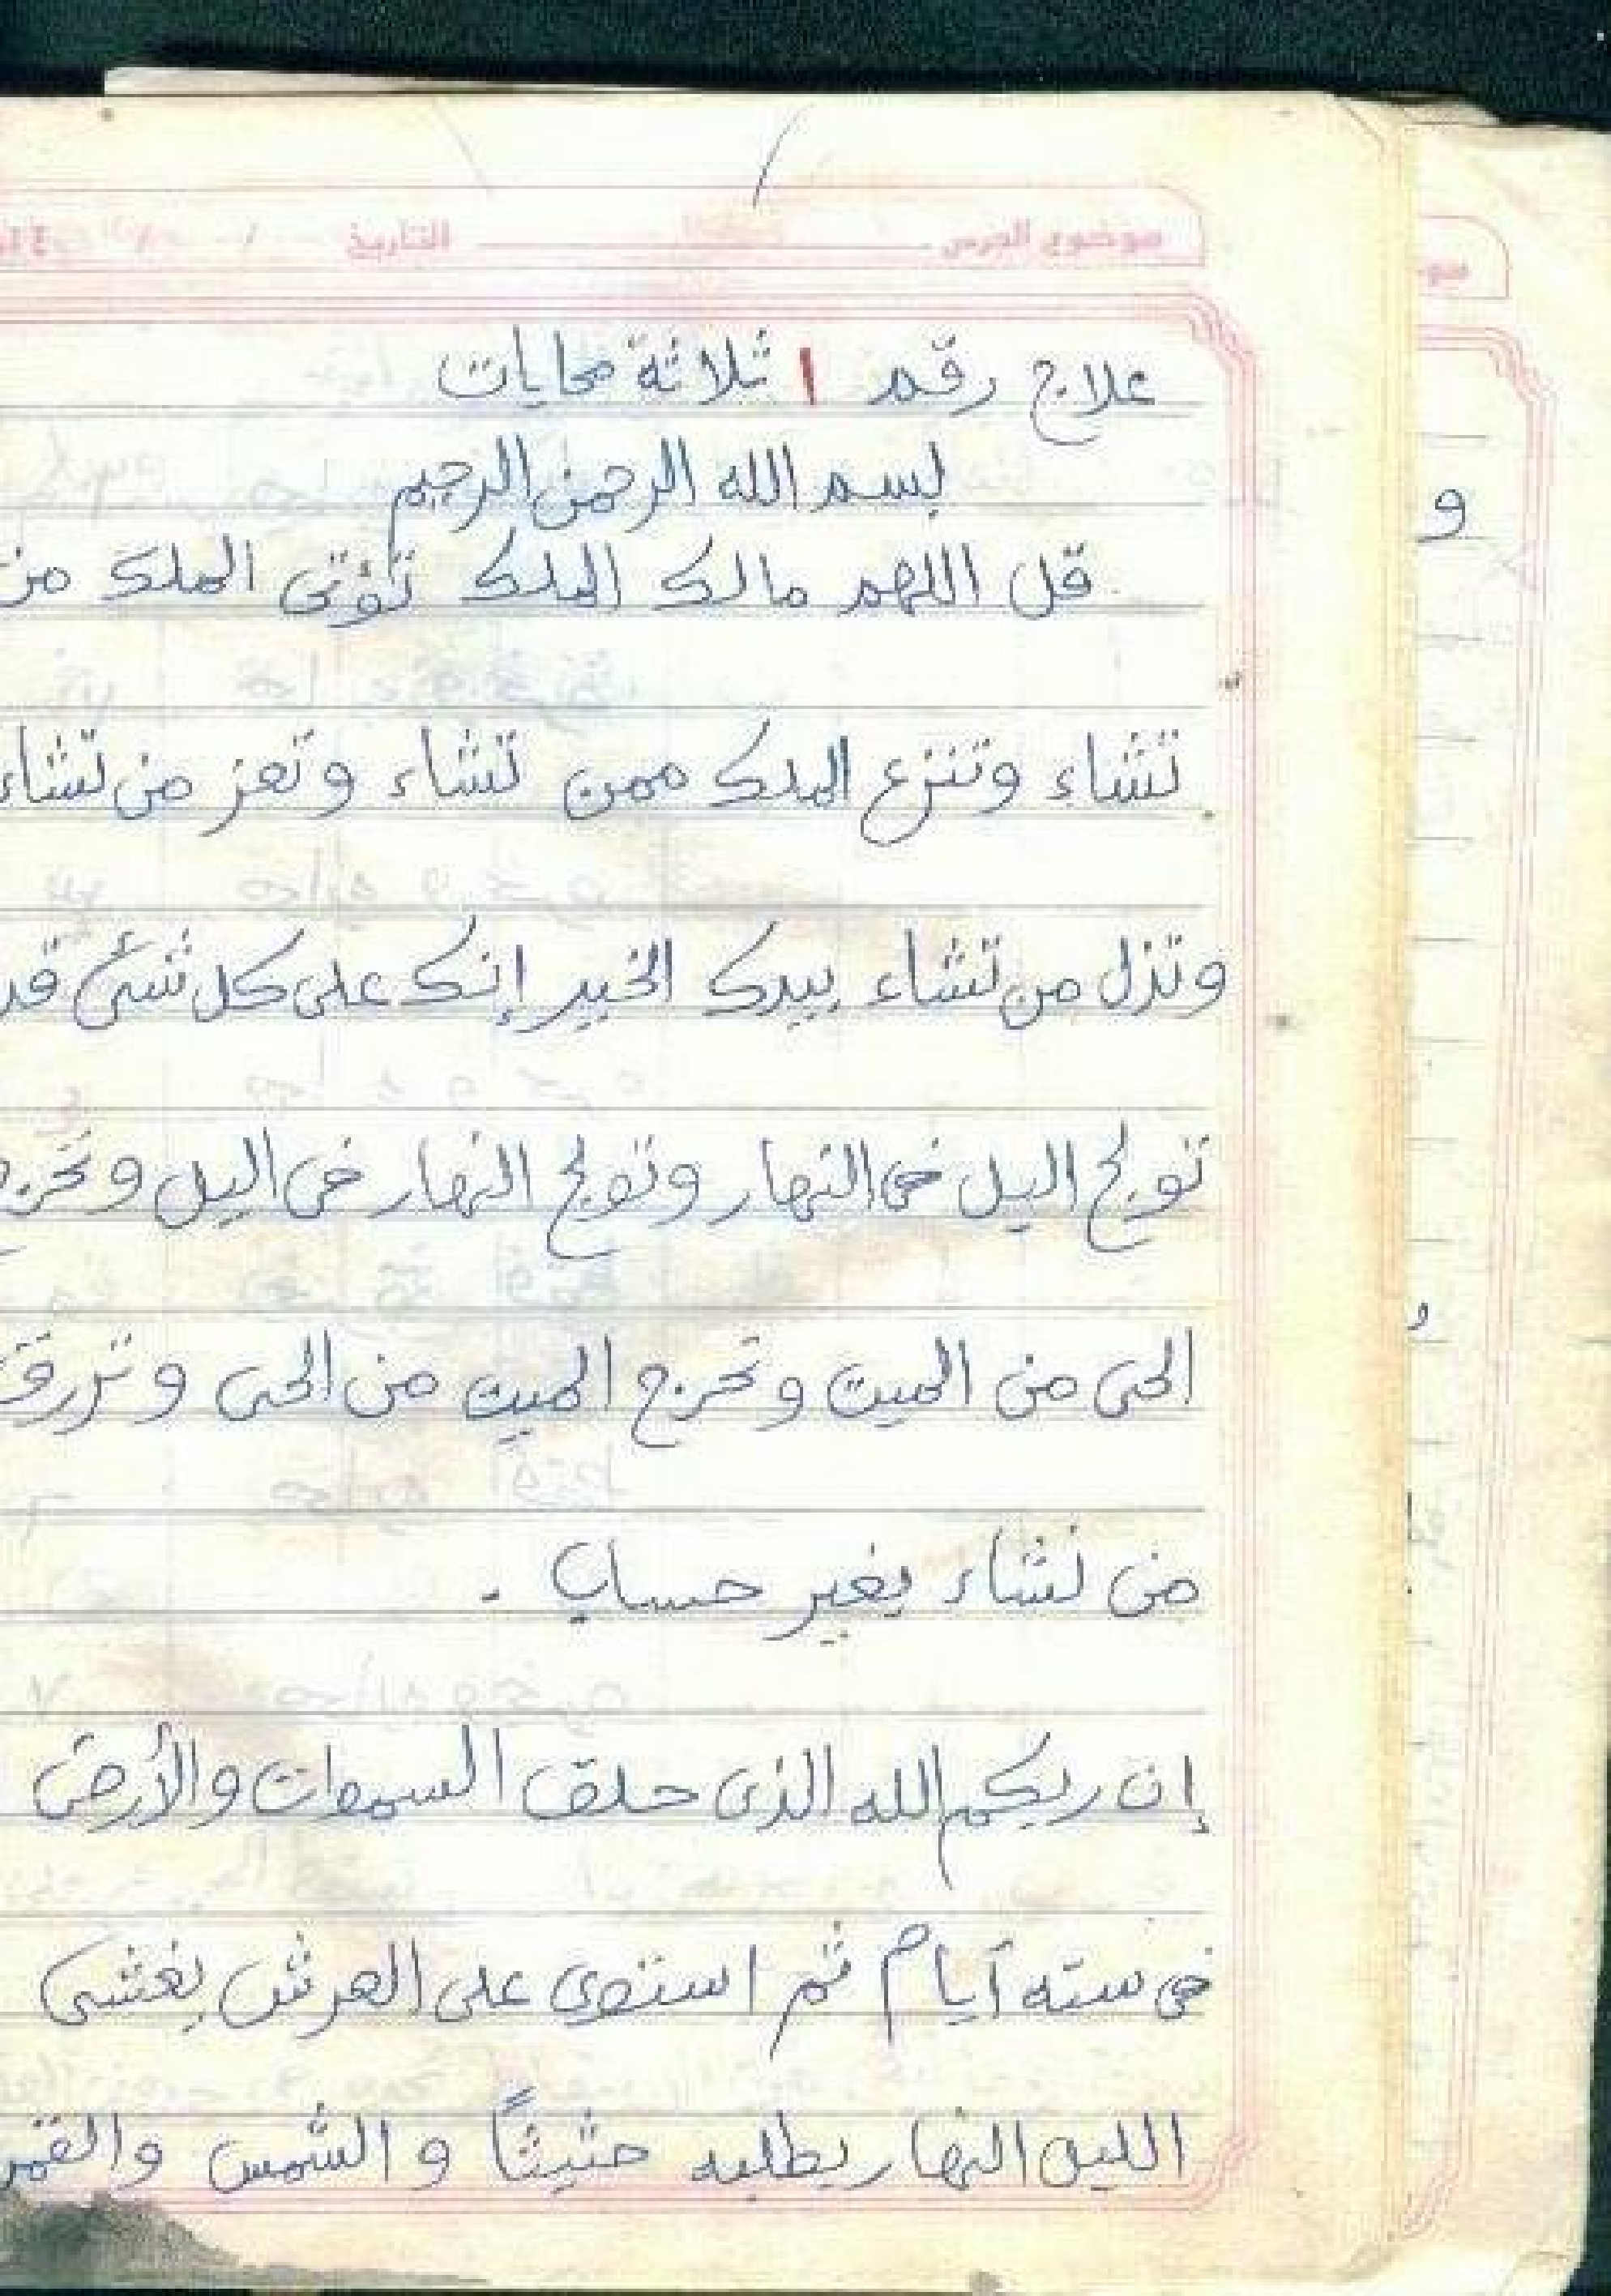 موضوع الدرس التاريخ
علاج رقم ١ ثلاثة محايات
بسم الله الرحمن الرحيم
قل اللهم مالك الملك تؤتى الملك من
تشاء وتنزع الملك ممن تشاء وتعز من تشاء
وتذل من تشاء بيدك الخير إنك على كل شئ قد
تولج اليل فى النهار وتولج النهار فى اليل وتخرج
الحى من الميت وتخرج الميت من الحى وترزق
من تشاء بغير حساب .
إن ربكم الله الذى خلق السموات والأرض
فى سته أيام ثم استوى على العرش يغشى
الليل النهار يطلبه حثيثاً والشمس والقمر
و